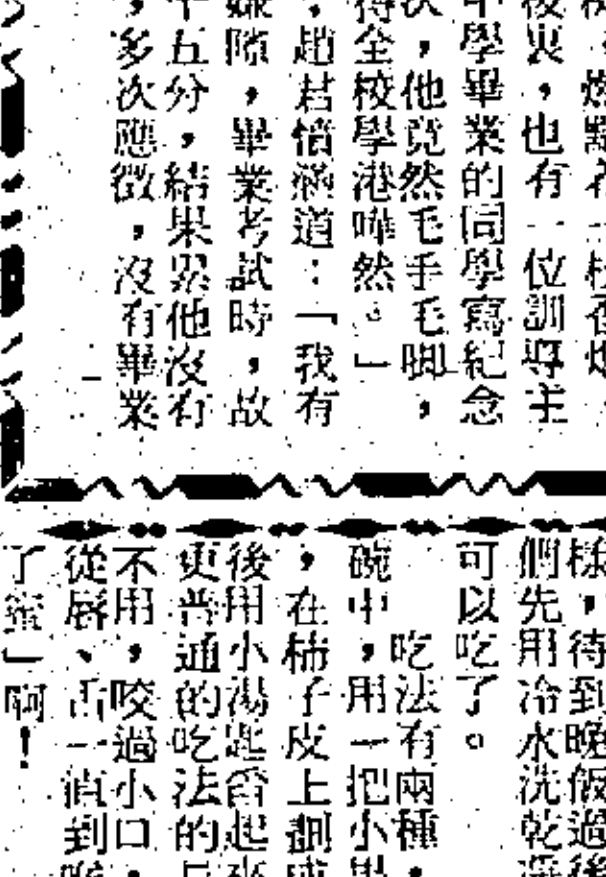 後裏，也有一位訓導主
中學畢業的同學寫紀念
次，他竟然毛手毛脚，
得全校學港嘩然。」
，趙君憤懣道：「我有
嫌隙，畢業考試時，故
十五分，結果累他沒有
，多次應徵，沒有畢業
樣，待到晚飯過後
們先用冷水洗乾淨
可以吃了。
吃法有兩種，
碗中，用一把小
，在柿子皮上劃
後用小湯匙舀起來
更普通的吃法的
不用，咬過小口
從唇、舌一直到
了蜜」啊！